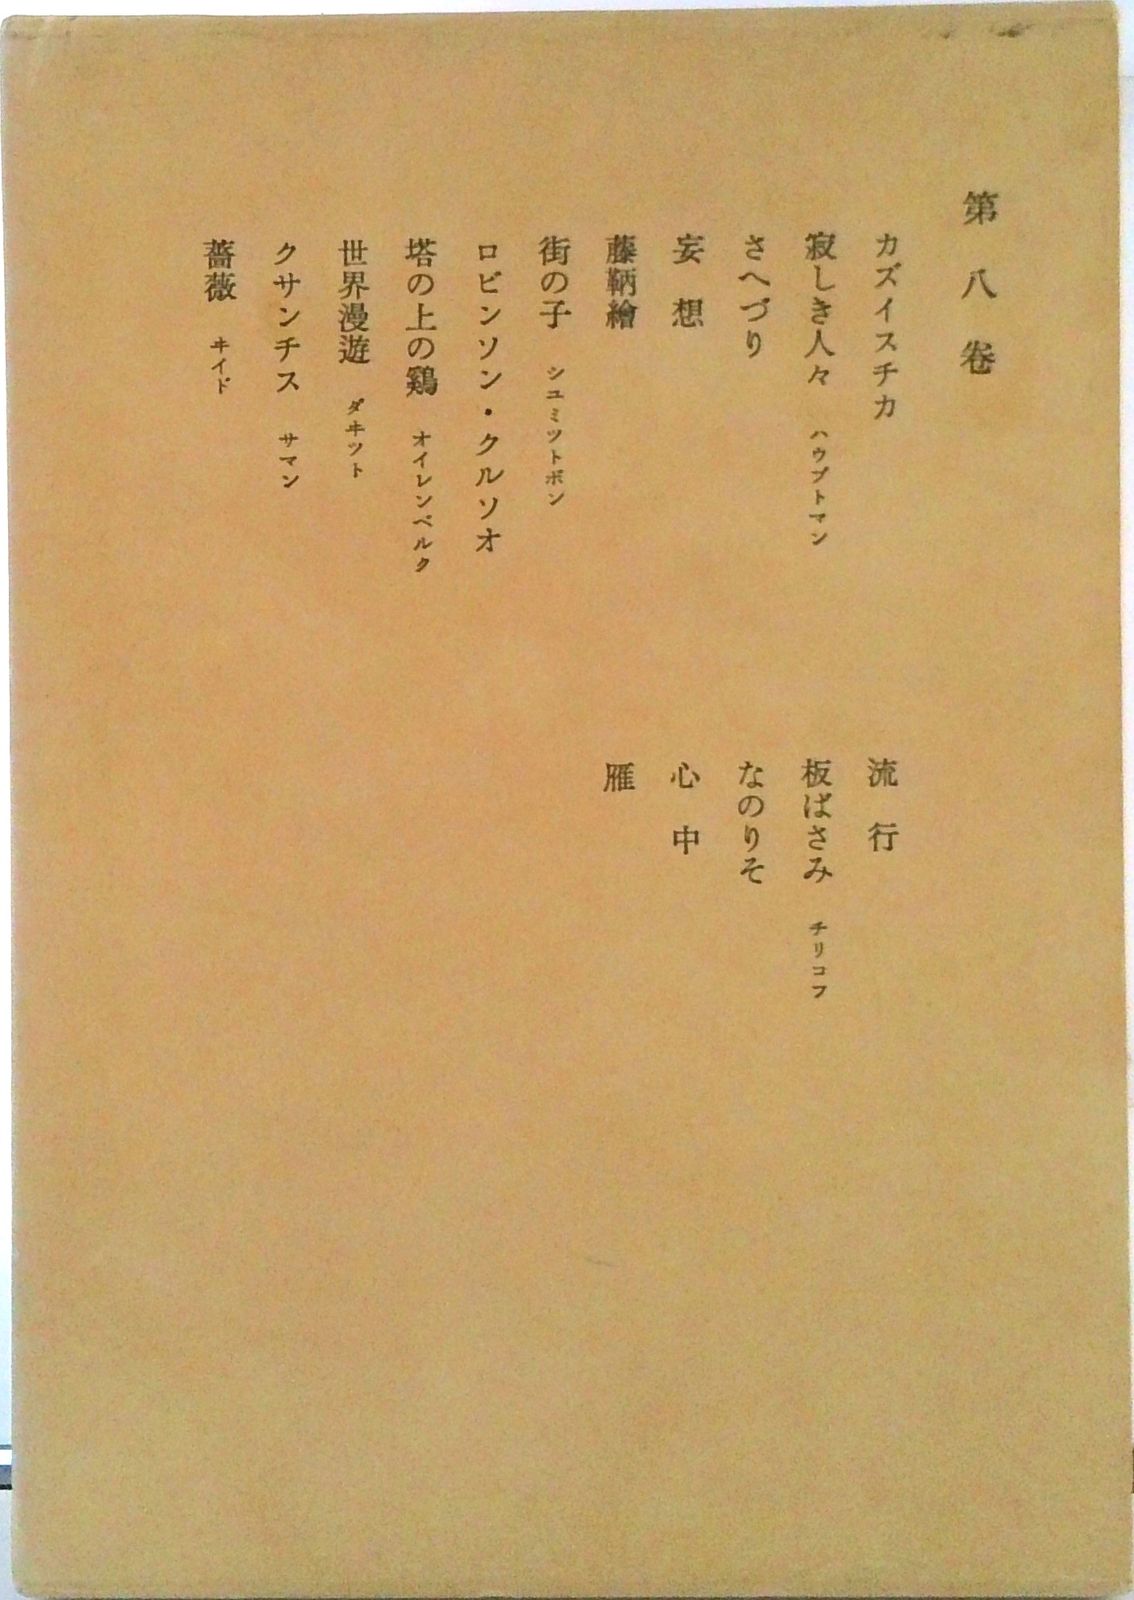 第八巻
カズイスチカ
寂しき人々 ハウプトマン
さへづり
妄想
藤鞆繪
街の子 シユミツトボン
ロビンソン・クルソオ
塔の上の鷄 オイレンベルク
世界漫遊 ダヰツト
クサンチス サマン
薔薇 ヰイド
流行
板ばさみ チリコフ
なのりそ
心中
雁